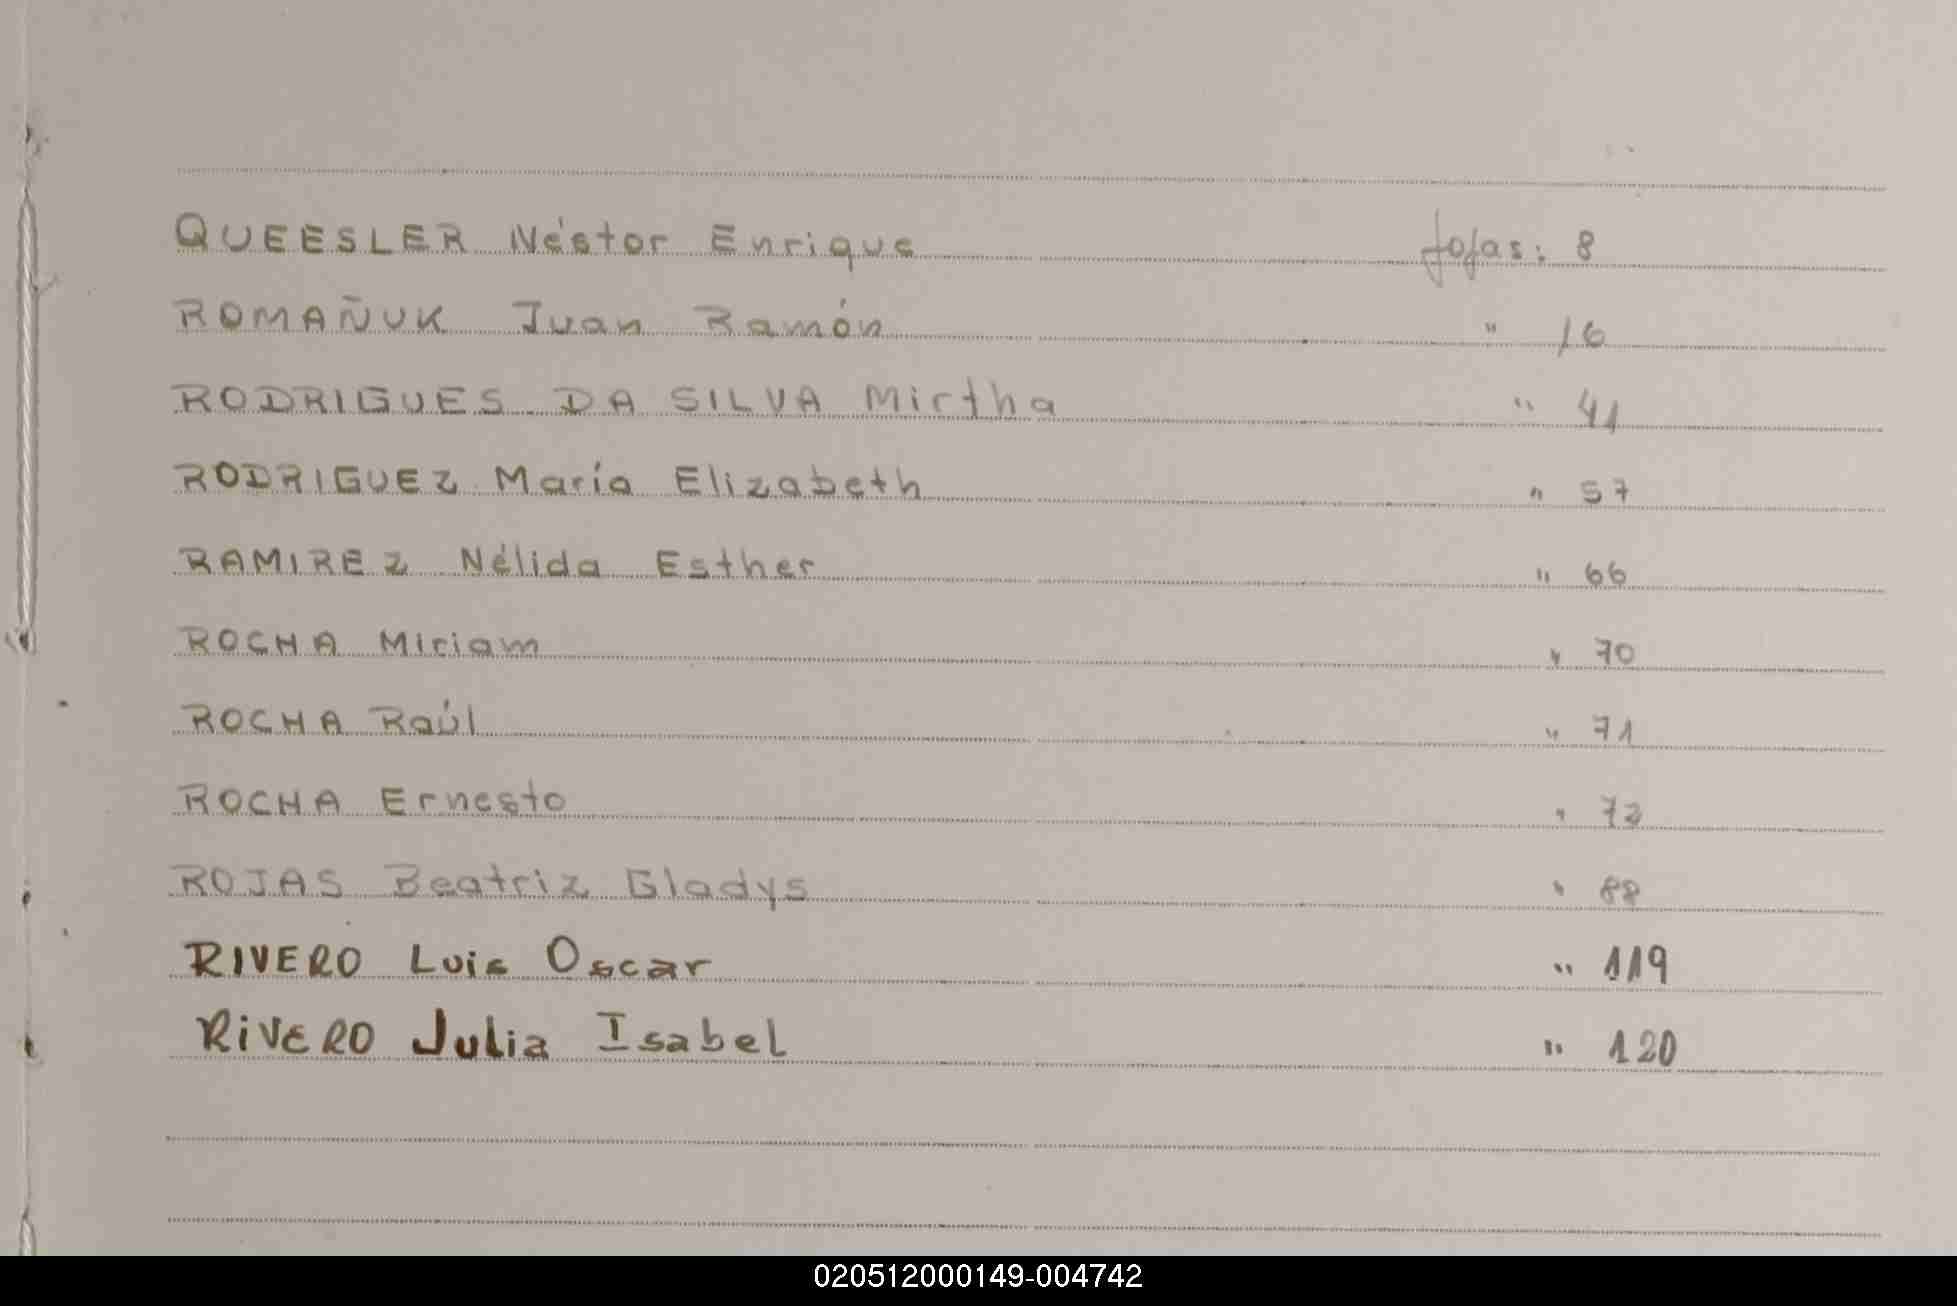 QUEESLER Néstor Enrique fojas: 8
ROMAÑUK Juan Ramón " 16
RODRIGUES DA SILVA Mirtha " 41
RODRIGUEZ María Elizabeth " 57
RAMIREZ Nélida Esther " 66
ROCHA Miriam " 70
ROCHA Raúl " 71
ROCHA Ernesto " 72
ROJAS Beatriz Gladys " 88
RIVERO Luis Oscar " 119
RiVERO Julia Isabel " 120
020512000149-004742